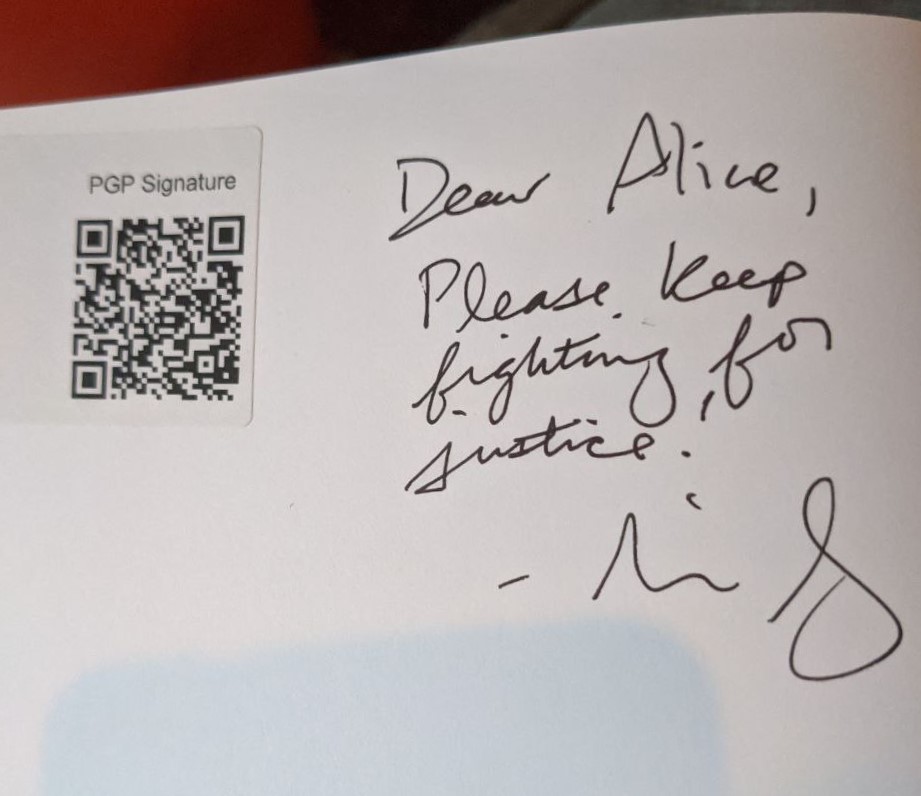 PGP Signature
Dear Alice,
Please keep
fighting for
justice!